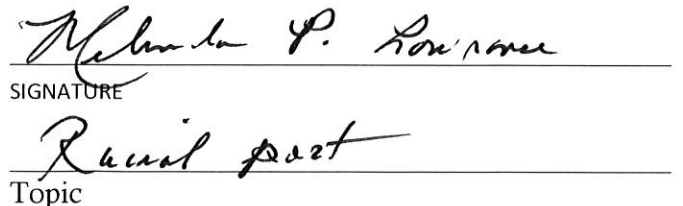 Melinda P. Lowrance
SIGNATURE
Racial past
Topic